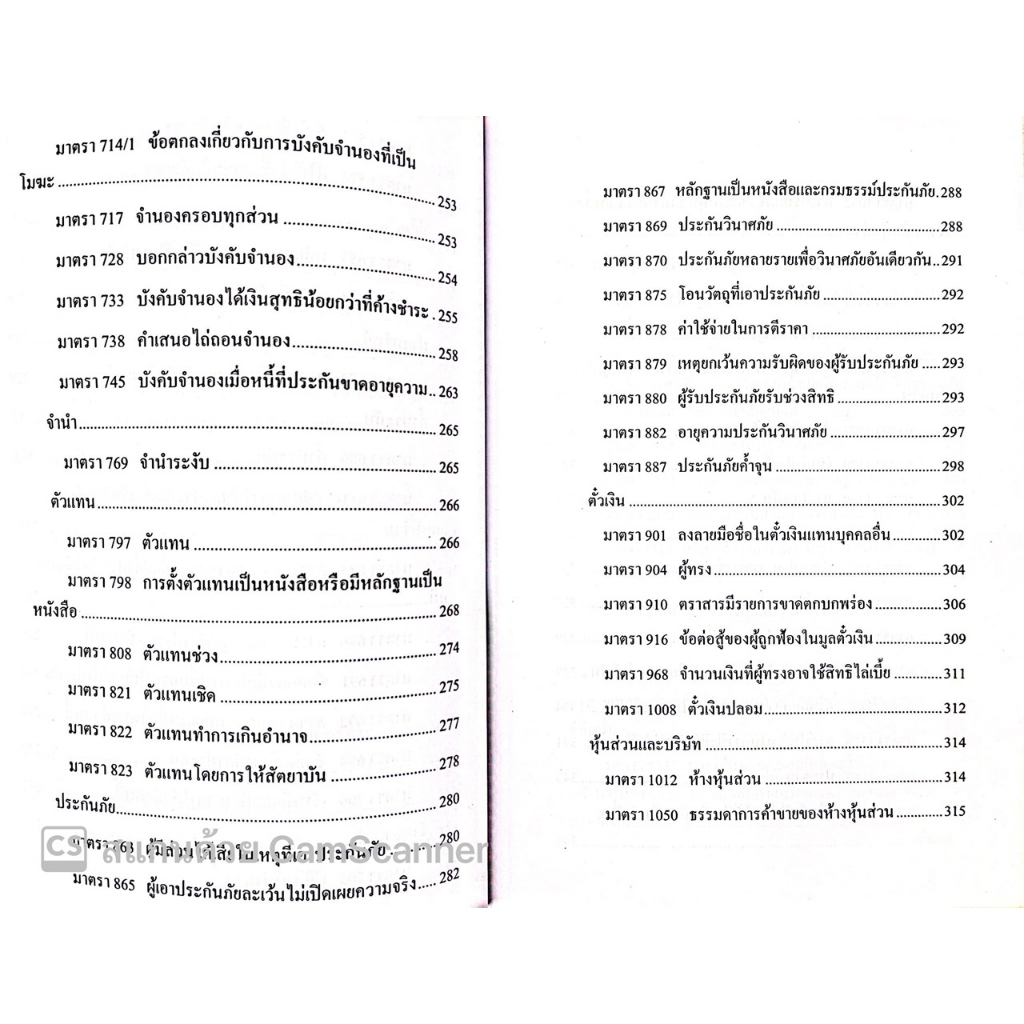 มาตรา 714/1 ข้อตกลงเกี่ยวกับการบังคับจำนองที่เป็น
โมฆะ ........ 253
มาตรา 717 จำนองครอบทุกส่วน ........ 253
มาตรา 728 บอกกล่าวบังคับจำนอง ........ 254
มาตรา 733 บังคับจำนองได้เงินสุทธิน้อยกว่าที่ค้างชำระ . 255
มาตรา 738 คำเสนอไถ่ถอนจำนอง ........ 258
มาตรา 745 บังคับจำนองเมื่อหนี้ที่ประกันขาดอายุความ .. 263
จำนำ ........ 265
มาตรา 769 จำนำระงับ ........ 265
ตัวแทน ........ 266
มาตรา 797 ตัวแทน ........ 266
มาตรา 798 การตั้งตัวแทนเป็นหนังสือหรือมีหลักฐานเป็น
หนังสือ ........ 268
มาตรา 808 ตัวแทนช่วง ........ 274
มาตรา 821 ตัวแทนเชิด ........ 275
มาตรา 822 ตัวแทนทำการเกินอำนาจ ........ 277
มาตรา 823 ตัวแทนโดยการให้สัตยาบัน ........ 278
ประกันภัย ........ 280
มาตรา 863 ผู้มีส่วนได้เสียในเหตุที่เอาประกันภัย ........ 280
CS สแกนด้วย CamScanner
มาตรา 865 ผู้เอาประกันภัยละเว้นไม่เปิดเผยความจริง ..... 282
มาตรา 867 หลักฐานเป็นหนังสือและกรมธรรม์ประกันภัย . 288
มาตรา 869 ประกันวินาศภัย ........ 288
มาตรา 870 ประกันภัยหลายรายเพื่อวินาศภัยอันเดียวกัน .. 291
มาตรา 875 โอนวัตถุที่เอาประกันภัย ........ 292
มาตรา 878 ค่าใช้จ่ายในการตีราคา ........ 292
มาตรา 879 เหตุยกเว้นความรับผิดของผู้รับประกันภัย ..... 293
มาตรา 880 ผู้รับประกันภัยรับช่วงสิทธิ ........ 293
มาตรา 882 อายุความประกันวินาศภัย ........ 297
มาตรา 887 ประกันภัยค้ำจุน ........ 298
ตั๋วเงิน ........ 302
มาตรา 901 ลงลายมือชื่อในตั๋วเงินแทนบุคคลอื่น ........ 302
มาตรา 904 ผู้ทรง ........ 304
มาตรา 910 ตราสารมีรายการขาดตกบกพร่อง ........ 306
มาตรา 916 ข้อต่อสู้ของผู้ถูกฟ้องในมูลตั๋วเงิน ........ 309
มาตรา 968 จำนวนเงินที่ผู้ทรงอาจใช้สิทธิไล่เบี้ย ........ 311
มาตรา 1008 ตั๋วเงินปลอม ........ 312
หุ้นส่วนและบริษัท ........ 314
มาตรา 1012 ห้างหุ้นส่วน ........ 314
มาตรา 1050 ธรรมดาการค้าขายของห้างหุ้นส่วน ........ 315